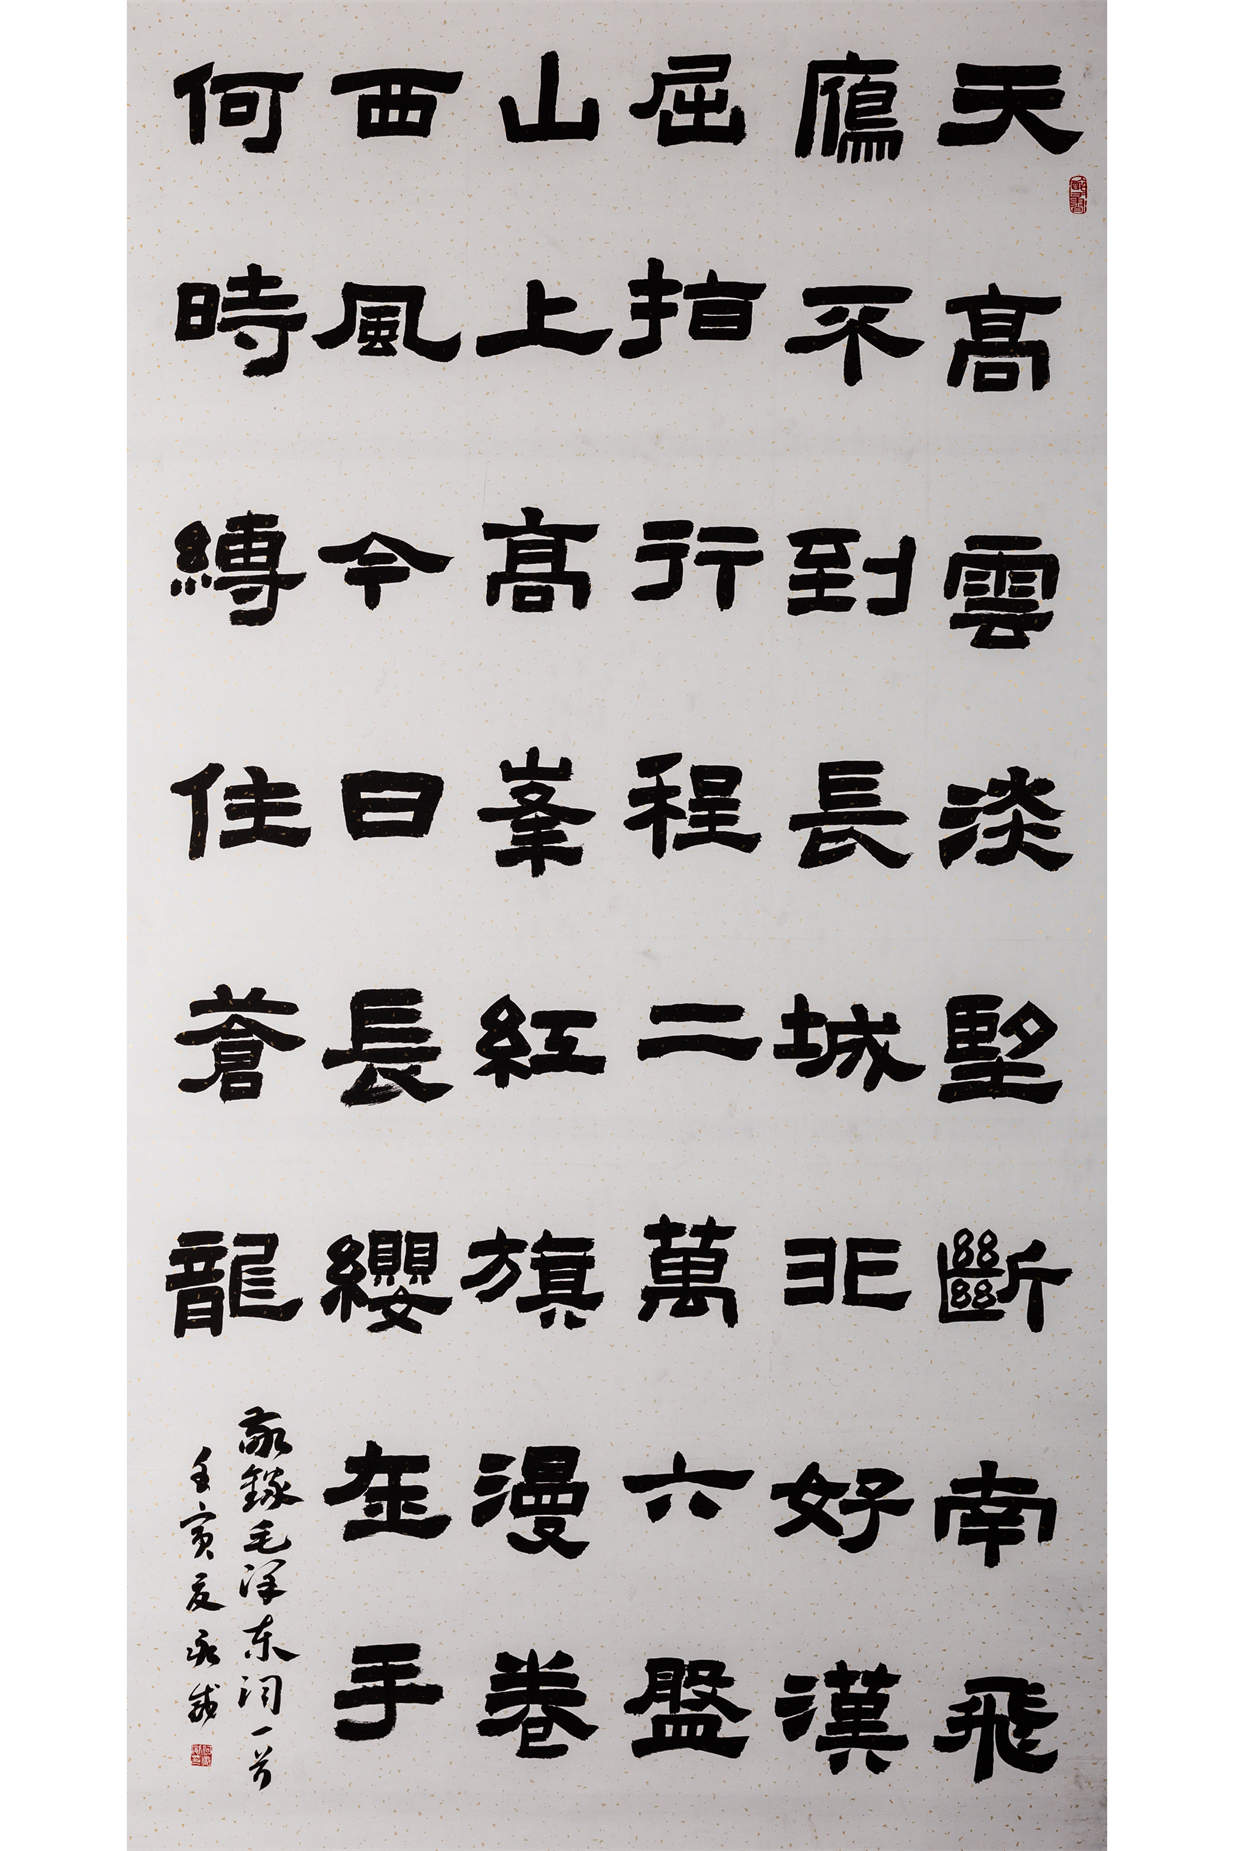 天高雲淡望斷南飛
鴈不到長城非好漢
屈指行程二萬六盤
山上高峯紅旗漫卷
西風今日長纓在手
何時縛住蒼龍
敬錄毛泽东词一首
壬寅夏永